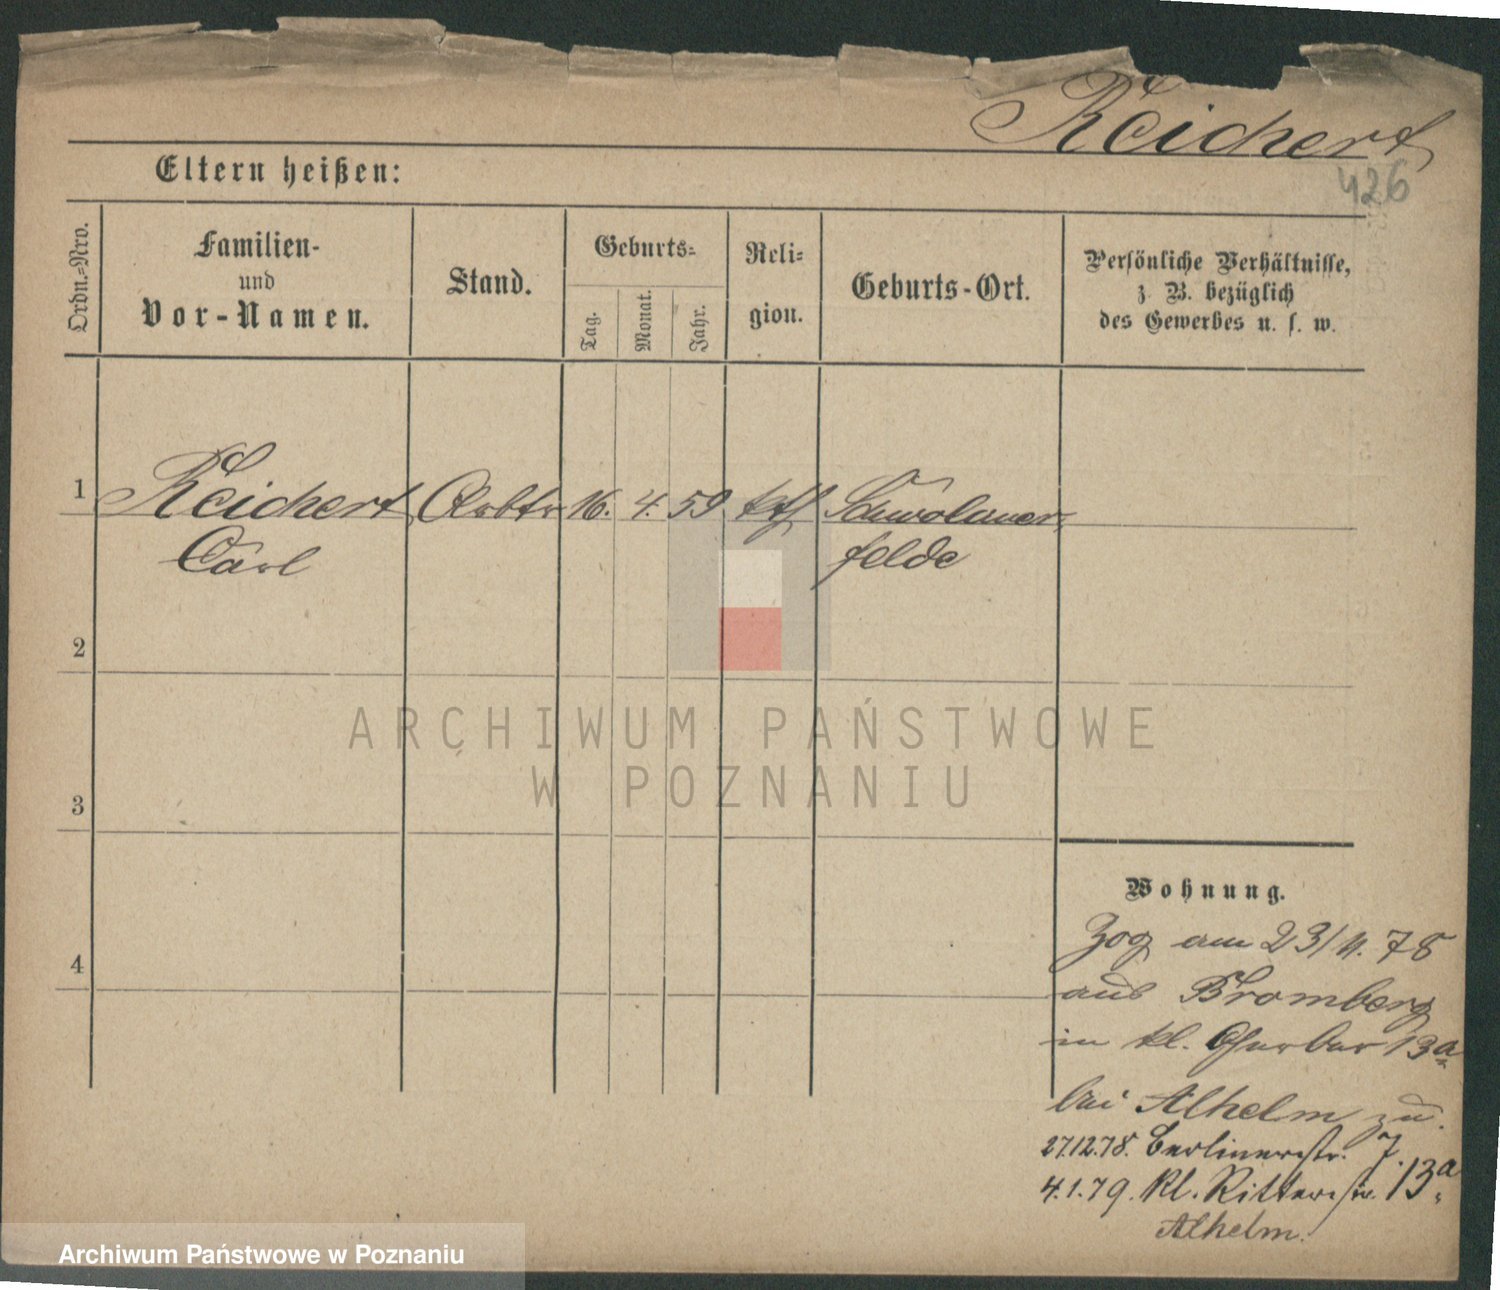 Reichert
426
Eltern heißen:
Ordn.-Nro.
Familien-
und
Vor-Namen.
Stand.
Geburts-
Tag.
Monat.
Jahr.
Reli-
gion.
Geburts-Ort.
Persönliche Verhältnisse,
z. B. bezüglich
des Gewerbes u. s. w.
1 Reichert Arbtr 16. 4. 59 kth
Carl felde
2
ARCHIWUM PAŃSTWOWE
W POZNANIU
3
Wohnung.
4
Zog am 23/4. 78
aus Bromberg
in kl. Gerber 13a
bei Alhelm zu.
27.12.78. Berlinerstr. 7.
4.1.79. Kl. Ritterstr. 13a
Alhelm.
Archiwum Państwowe w Poznaniu